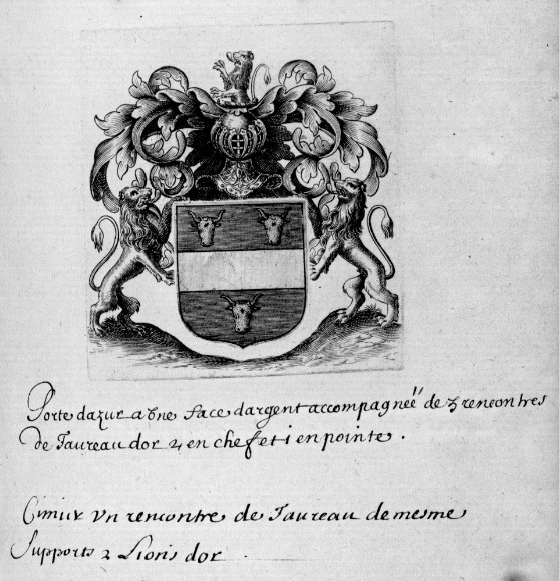 Porte dazur a vne face dargent accompagnéé de 3 rencontres
de Taureau dor 2, en chef et i en pointe.
Cimiur vn rencontre de Taureau de mesme
Supports 2 Lions dor